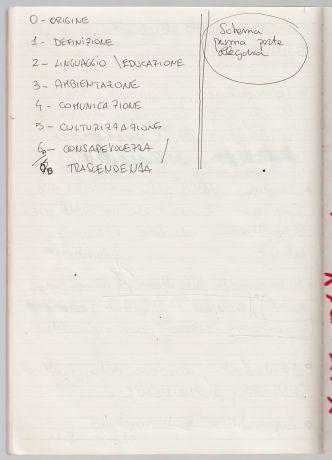 0 - ORIGINE
1 - DEFINIZIONE
2 - LINGUAGGIO \ EDUCAZIONE
3 - AMBIENTAZIONE
4 - COMUNICAZIONE
5 - CULTURIZZAZIONE
6 - CONSAPEVOLEZZA /
TRASCENDENZA
Schema
prima parte